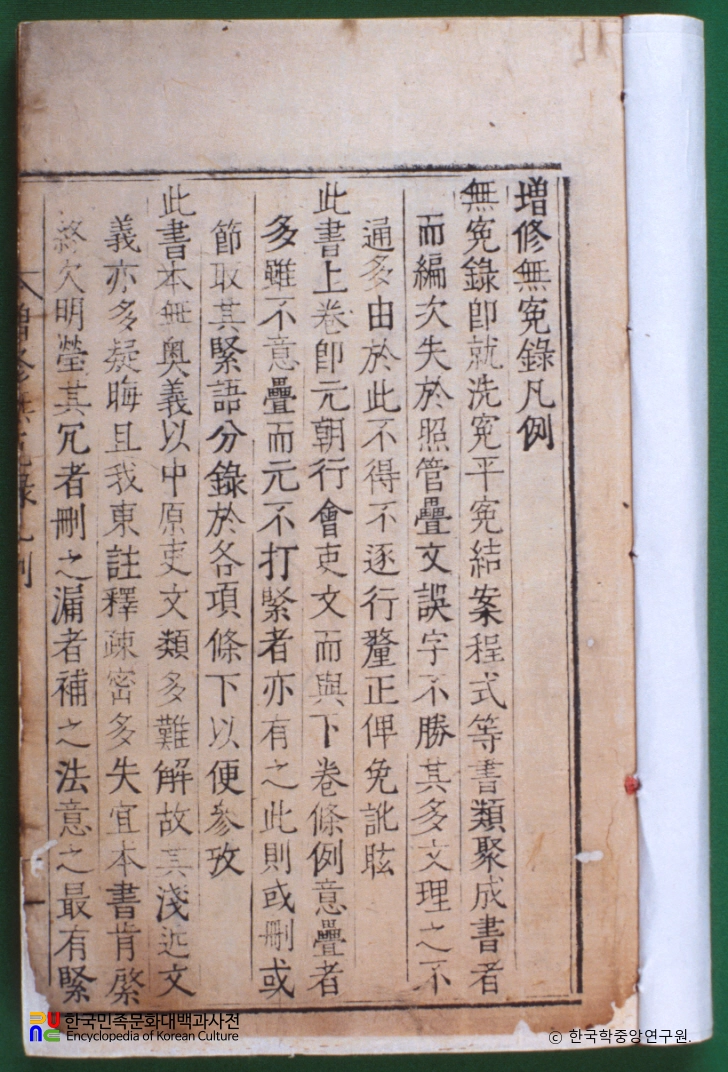 增修無冤錄凡例
無冤錄卽就洗冤平冤結案程式等書類聚成書者
而編次失於照管疊文誤字不勝其多文理之不
通多由於此不得不逐行釐正俾免訛眩
此書上卷卽元朝行會吏文而與下卷條例意疊者
多雖不意疊而元不打緊者亦有之此則或刪或
節取其緊語分錄於各項條下以便參攷
此書本無奧義以中原吏文類多難解故其淺近文
義亦多疑晦且我東註釋疎密多失宜本書肯綮
終欠明瑩其冗者刪之漏者補之法意之最有緊
增修無冤錄凡例
한국민족문화대백과사전
Encyclopedia of Korean Culture
© 한국학중앙연구원.